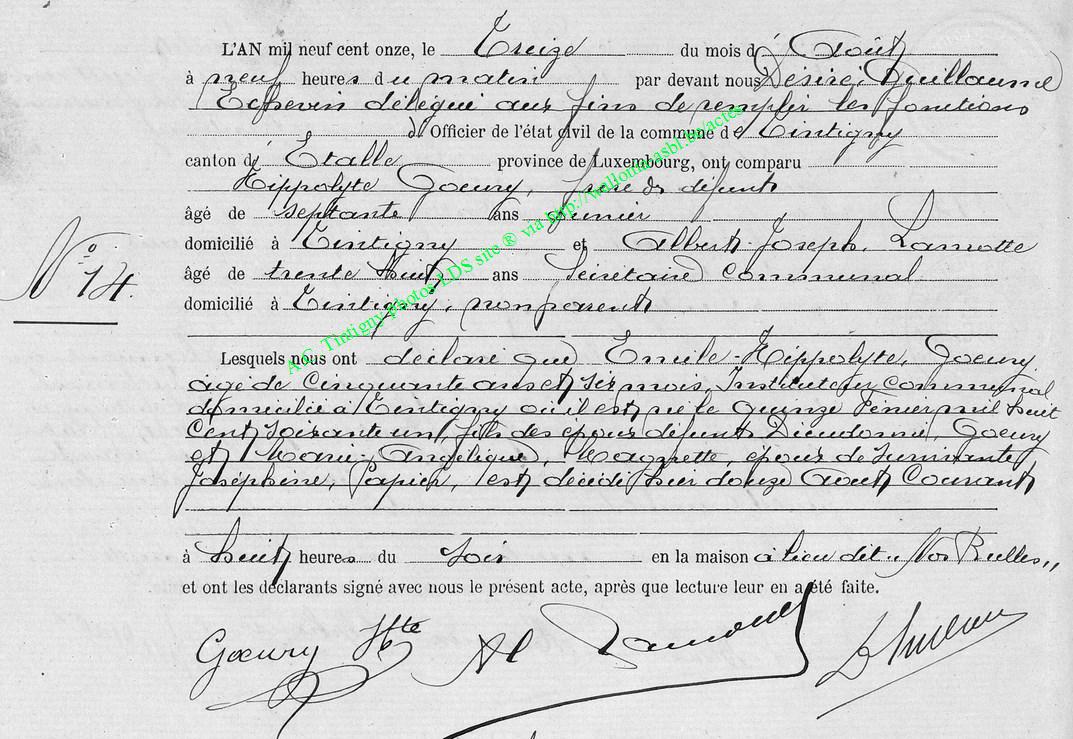 L'AN mil neuf cent onze, le Treize du mois d' Août
à neuf heures du matin par devant nous Désiré, Guillaume
Echevin délégué aux fins de remplir les fonctions
d'Officier de l'état civil de la commune de Tintigny
canton d' Etalle province de Luxembourg, ont comparu
Hippolyte Goeury, frère du défunt
âgé de septante ans
domicilié à Tintigny et Albert-Joseph, Lamotte
âgé de trente huit ans Secrétaire communal
domicilié à Tintigny, non parent
N° 14.
Lesquels nous ont déclaré que Emile-Hippolyte, Goeury
âgé de Cinquante ans et six mois, Instituteur communal
domicilié à Tintigny où il est né le quinze Février mil huit
cent soixante un, fils des époux défunts Dieudonné, Goeury
et Marie-Angélique, Magnette, époux de survivante
Joséphine, Papier, est décédé hier douze Août Courant
à huit heures du soir en la maison à lieu dit "Nos Ruelles"
et ont les déclarants signé avec nous le présent acte, après que lecture leur en a été faite.
Goeury Hte Al Lamotte
A.C. Tintigny photos LDS site ® via http://wallonia-asbl.be/actes